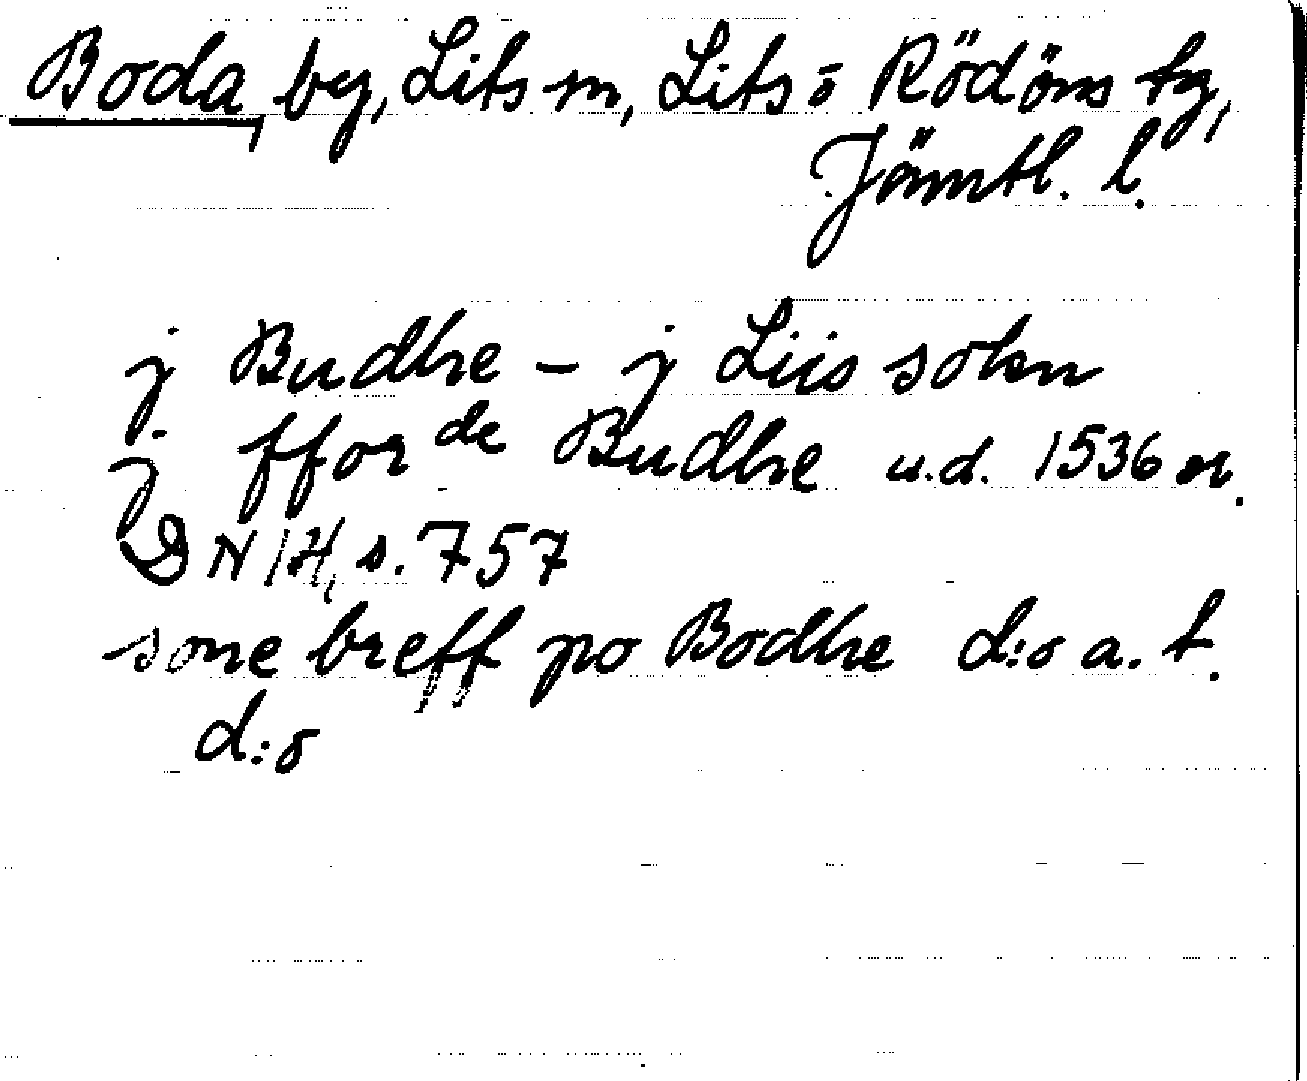 Boda, by, Lits sn, Lits o Rödöns tg,
Jämtl. l.
j Budhe – j Liis sokn
j ffor de Budhe u.d. 1536 or.
DN 14, s. 757
sone breff po Bodhe d:o a. t.
d:o